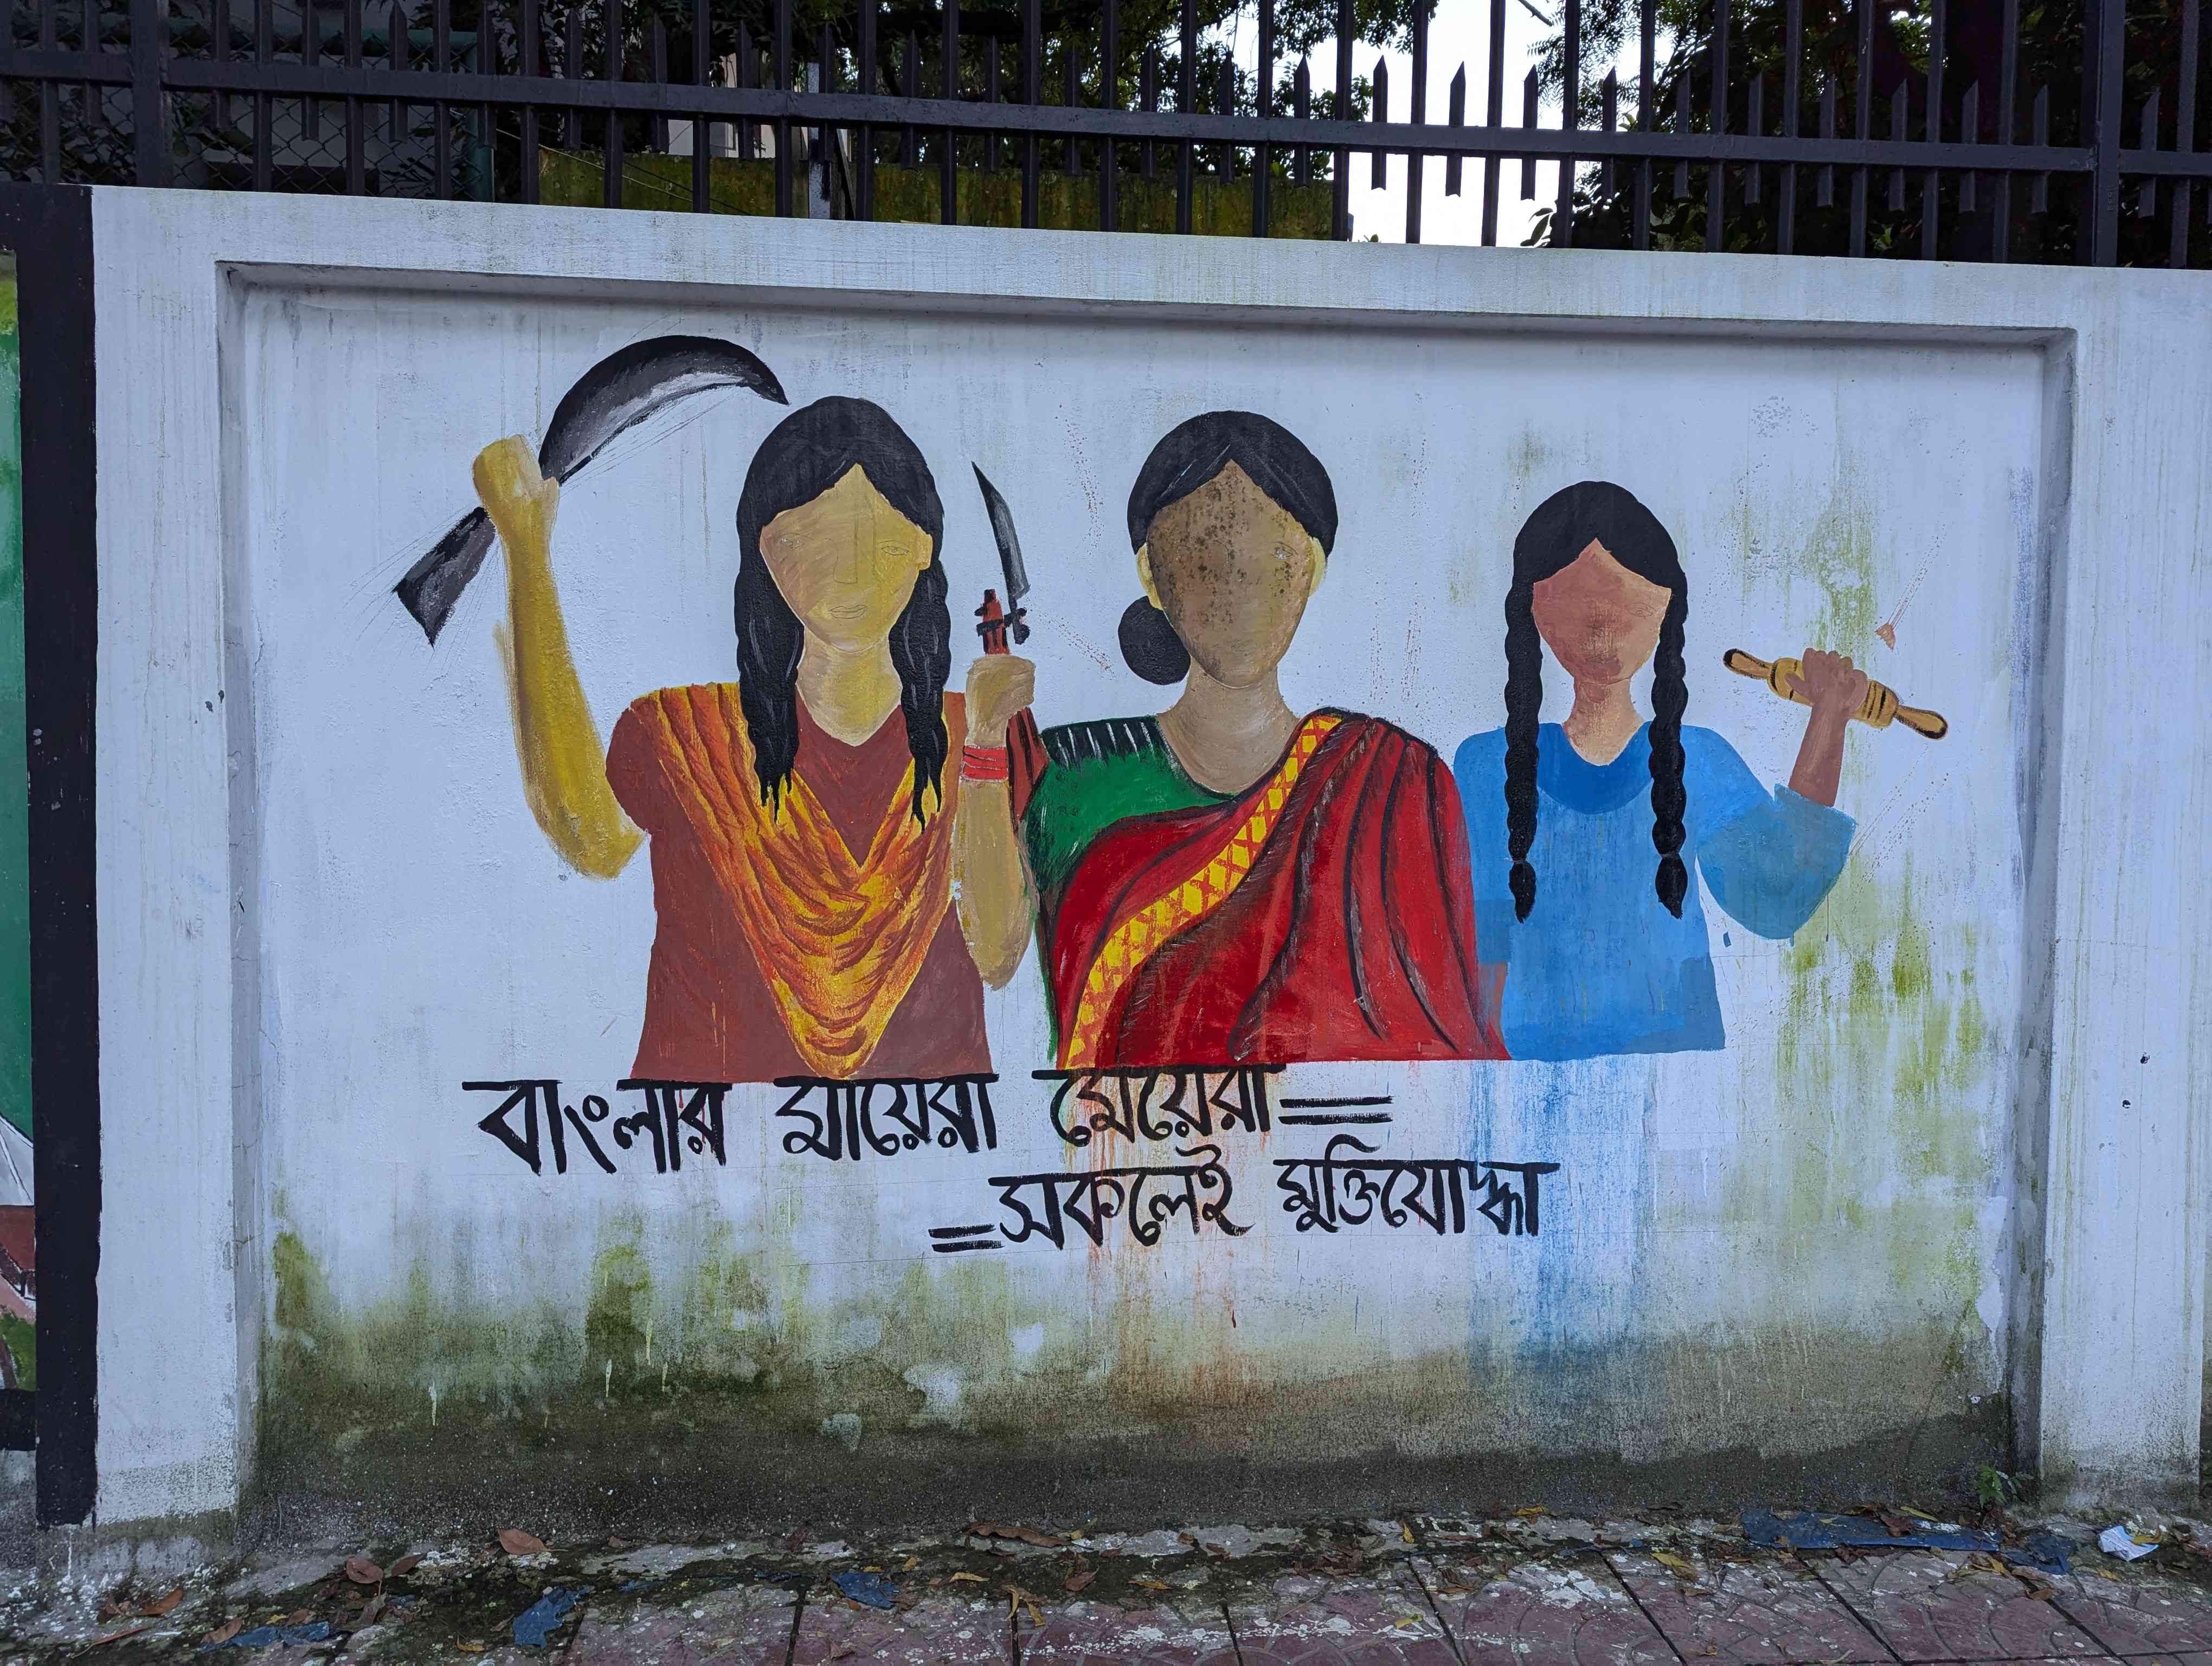 বাংলার মায়েরা মেয়েরা=
=সকলেই মুক্তিযোদ্ধা